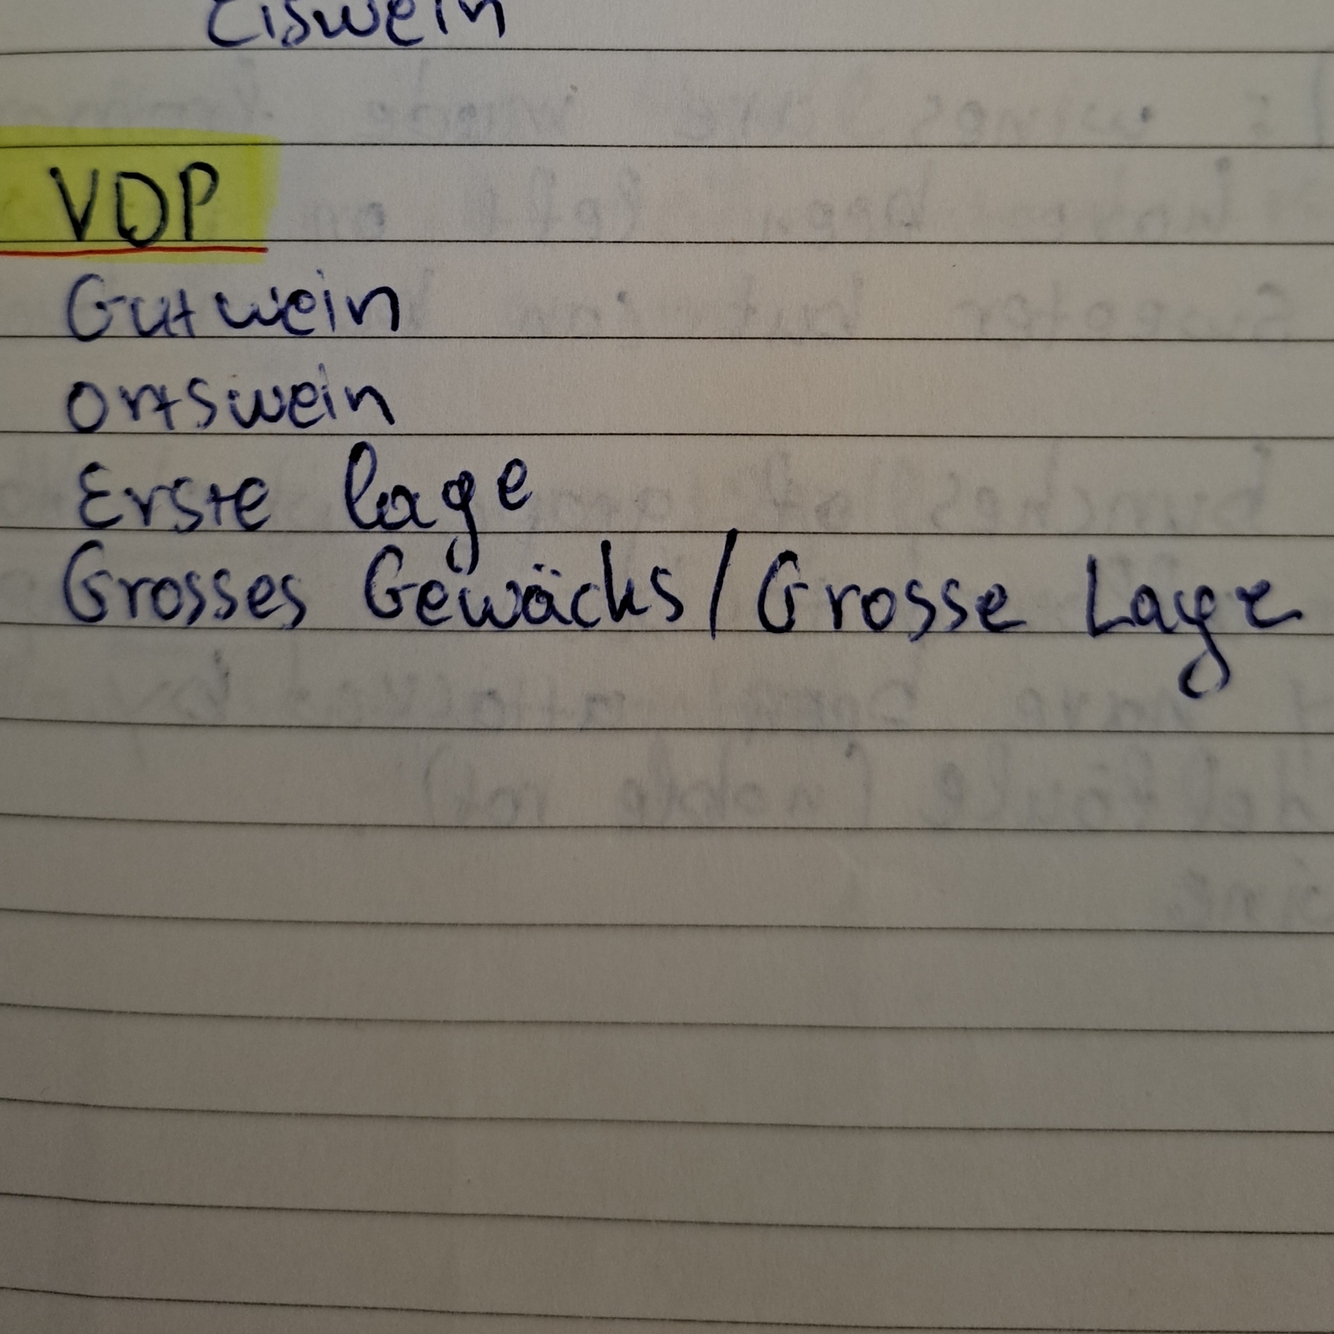 Eiswein
VDP
Gutwein
Ortswein
Erste lage
Grosses Gewächs / Grosse Lage